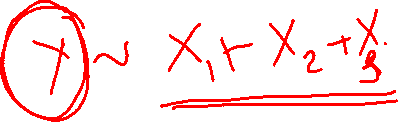 Y ~ X₁ + X₂ + X₃